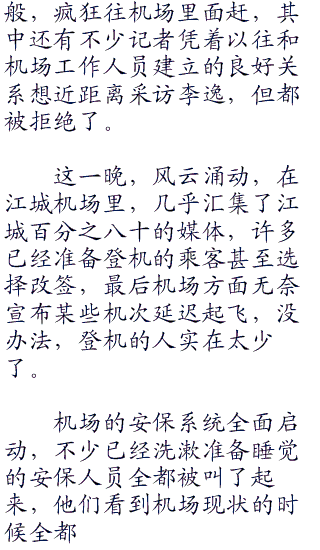 般，疯狂往机场里面赶，其
中还有不少记者凭着以往和
机场工作人员建立的良好关
系想近距离采访李逸，但都
被拒绝了。
这一晚，风云涌动，在
江城机场里，几乎汇集了江
城百分之八十的媒体，许多
已经准备登机的乘客甚至选
择改签，最后机场方面无奈
宣布某些机次延迟起飞，没
办法，登机的人实在太少
了。
机场的安保系统全面启
动，不少已经洗漱准备睡觉
的安保人员全都被叫了起
来，他们看到机场现状的时
候全都